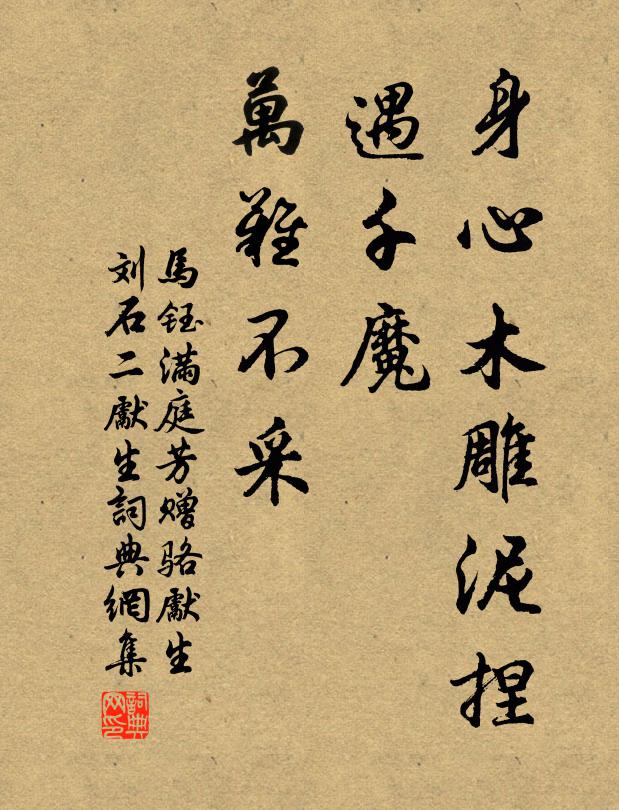 身心木雕泥捏
遇千魔
萬難不采
馬钰满庭芳赠骆獻生
刘石二獻生詞典網集
詞典网印